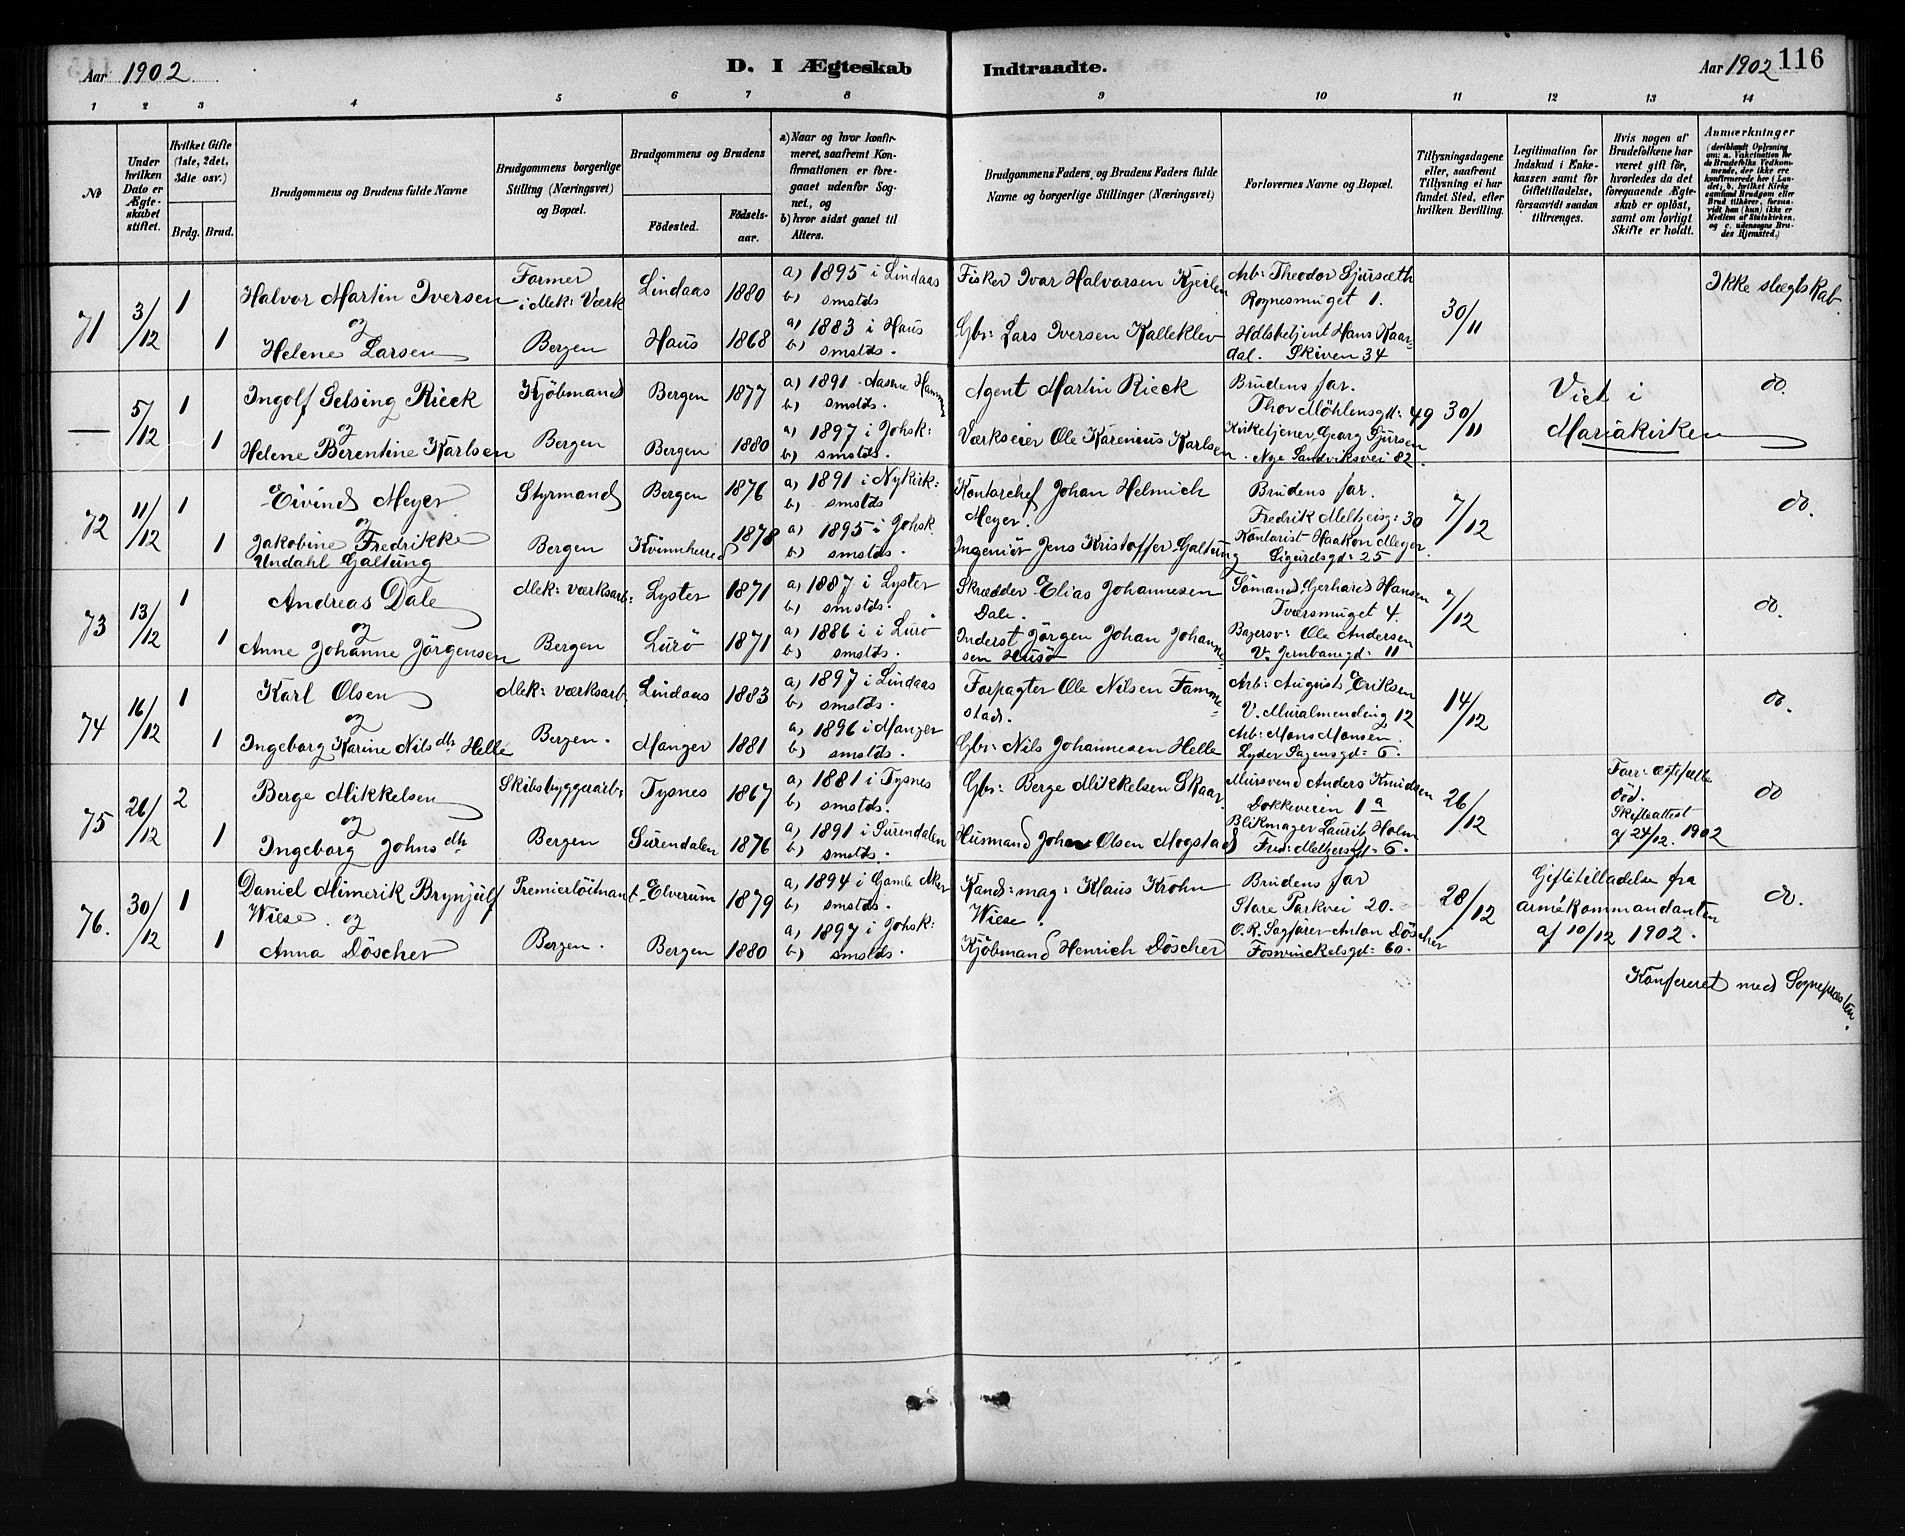 Aar 1902
D. I Ægteskab Indtraadte.
Aar 1902 116
1 2 3 4 5 6 7 8 9 10 11 12 13 14
No
Under hvilken Dato er Ægteskabet stiftet.
Hvilket Gifte (1ste, 2det, 3die osv.)
Brdg. Brud.
Brudgommens og Brudens fulde Navne
Brudgommens borgerlige Stilling (Næringsvei) og Bopæl.
Brudgommens og Brudens
Födested. Födselsaar.
a) Naar og hvor konfirmeret, saafremt Konfirmationen er foregaaet udenfor Sognet, og
b) hvor sidst gaaet til Alters.
Brudgommens Faders, og Brudens Faders fulde Navne og borgerlige Stillinger (Næringsvei)
Forlovernes Navne og Bopæl.
Tillysningsdagene eller, saafremt Tillysning ei har fundet Sted, efter hvilken Bevilling.
Legitimation for Indskud i Enkekassen samt for Giftetilladelse, forsaavidt saadan tiltrænges.
Hvis nogen af Brudefolkene har været gift för, hvorledes da det foregaaende Ægteskab er oplöst, samt om lovligt Skifte er holdt.
Anmærkninger (deriblandt Oplysning om: a. Vakcination for de Brudefolks Vedkommende, der ikke ere konfirmerede her i Landet; b. hvilket Kirkesamfund Brudgom eller Brud tilhörer, forsaavidt han (hun) ikke er Medlem af Statskirken, og c. udensogns Brudes Hjemsted.)
71 3/12 1 Halvor Martin Iversen Former i Mek: Værk Lindaas 1880 a) 1895 i Lindaas b) smstds Fisker Ivar Halvorsen Kjeilen Arb: Theodor Gjursæth Rognesmuget 1. 30/11 Ikke slægtskab.
og
1 Helene Larsen Bergen Haus 1868 a) 1883 i Haus b) smstds. Gbr: Lars Iversen Kalleklev Hdlsbetjent Hans Kaardal. Skiven 34
— 5/12 1 Ingolf Selsing Rieck Kjöbmand Bergen 1877 a) 1891 b) smstds. Agent Martin Rieck Brudens far. Thor Möhlensgd: 49 30/11 Viet i Mariakirken do.
og
1 Helene Berentine Karlsen Bergen Bergen 1880 a) 1897 i Johsk: b) smstds. Værkseier Ole Karenius Karlsen Kirketjener Georg Gjursen. Nye Sandviksvei 82.
72 11/12 1 Eivind Meyer Styrmand Bergen 1876 a) 1891 i Nykirk: b) smstds Kontorchef Johan Helmich Meyer. Brudens far. Fredrik Meltzersg: 30 7/12 do.
og
1 Jakobine Fredrikke Undahl Galtung Bergen Kvinnherred 1878 a) 1895 i Johsk b) smstds. Ingeniör Jens Kristoffer Galtung Kontorist Haakon Meyer. Sigurdsgd: 25
73 13/12 1 Andreas Dale Mek: værksarb: Lyster 1871 a) 1887 i Lyster b) smstds. Skrædder Elias Johannesen Dale. Sömand Gerhard Hansen Tværsmuget 4. 7/12 do.
og
1 Anne Johanne Jörgensen Bergen Lurö 1871 a) 1886 i i Lurö b) smstds. Inderst Jörgen Johan Johannesen Husö Bagersv: Ole Andersen V. Jernbanegd: 11
74 16/12 1 Karl Olsen Mek: værksarb. Lindaas 1883 a) 1897 i Lindaas b) smstds. Forpagter Ole Nilsen Fammestad. Arb: August Eriksen V. Muralmending 12 14/12 do.
og
1 Ingeborg Karine Nilsdtr Helle Bergen. Manger 1881 a) 1896 i Manger b) smstds. Gbr: Nils Johannesen Helle Arb: Mons Monsen. Lyder Sagensgd: 6.
75 26/12 2 Berge Mikkelsen Skibsbyggerarb: Tysnes 1867 a) 1881 i Tysnes b) smstds. Gbr: Berge Mikkelsen Skaar Mursvend Anders Knudsen Dokkeveien 1a 26/12 Forr: ægtefælle död. Skifteattest af 24/12. 1902 do
og
1 Ingeborg Johnsdtr Bergen Surendalen 1876 a) 1891 i Surendalen b) smstds. Husmand John Olsen Mogstad Blikmager Laurits Holm Fred: Meltzersgd: 6.
76. 30/12 1 Daniel Mimerik Brynjulf Wiese. Premierlöitnant Elverum 1879 a) 1894 i Gamle Aker b) smstds. Kand: mag: Klaus Krohn Wiese. Brudens far Store Parkvei 20. 28/12 Giftetilladelse fra armékommandanten af 10/12 1902. do.
og
1 Anna Döscher Bergen. Bergen 1880 a) 1897 i Johsk: b) smstds. Kjöbmand Henrich Döscher O. R. Sagförer Anton Döscher Foswinckelsgd: 60.
Konfereret med Sognepræsten.